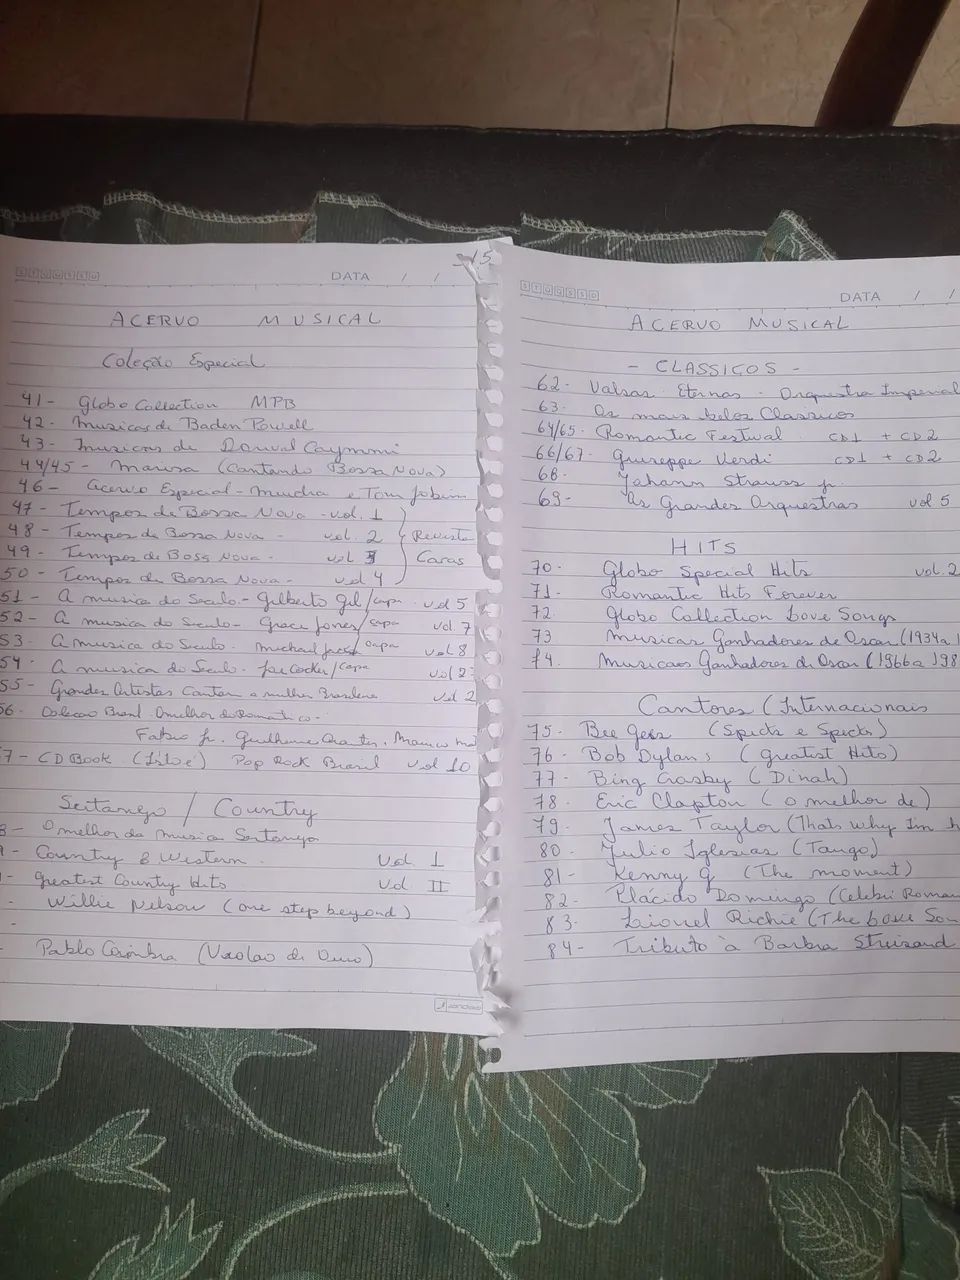 STQQSSD
DATA / /
ACERVO MUSICAL
Coleção Especial
41- Globo Collection MPB
42- Musicas de Baden Powell
43- musicas de Dorival Caymmi
44/45- Marisa (Cantando Bossa Nova)
46- acervo Especial- Miucha e Tom Jobim
47- Tempos de Bossa Nova - vol. 1
48- Tempos de Bossa Nova - vol. 2 Revista
49- Tempos de Boss Nova - vol 3 Caras
50- Tempos de Bossa Nova - vol 4
51- A musica do Seculo- Gilberto Gil/capa vol 5
52- A musica do Seculo- Grace Jones/capa vol 7
53- A musica do Seculo- Michael /capa vol 8
54- A musica do Seculo. Joe Cocker/capa vol 2
55- Grandes Artistas Cantam a mulher Brasileira vol 2
56- Colecao Brasil O melhor do Romantico-
Fabio Jr. Guilherme Arantes,
7- CD Book (Isto é) Pop Rock Brasil vol 10
Sertanejo / Country
8- O melhor da Musica Sertaneja
Country & Western. Vol. I
- Greatest Country Hits Vol. II
- Willie Nelson (one step beyond)
-
- Pablo Coimbra (Violao de Ouro)
Jandaia
15
STQQSSD
DATA / /
ACERVO MUSICAL
- CLASSICOS -
62- Valsas Eternas - Orquestra Imperial
63- Os mais belos Classicos
64/65- Romantic Festival CD1 + CD2
66/67- Giuseppe Verdi CD1 + CD2
68- Johann Strauss jr.
69- As Grandes Orquestras vol 5
HITS
70- Globo Special Hits vol. 2
71- Romantic Hits Forever
72- Globo Collection Love Songs
73 Musicas Ganhadores de Oscar (1934 a 1
74. Musicas Ganhadores de Oscar (1966 a 198
Cantores (Internacionais
75- Bee Gees (Spicks e Specks)
76- Bob Dylan (Greatest Hits)
77- Bing Crosby (Dinah)
78- Eric Clapton (o melhor de)
79- James Taylor (Thats why Im h
80- Julio Iglesias (Tango)
81- Kenny G (The moment)
82- Plácido Domingo (Celebri Roman
83- Lionel Richie (The Love Son
84- Tributo à Barbra Streisand